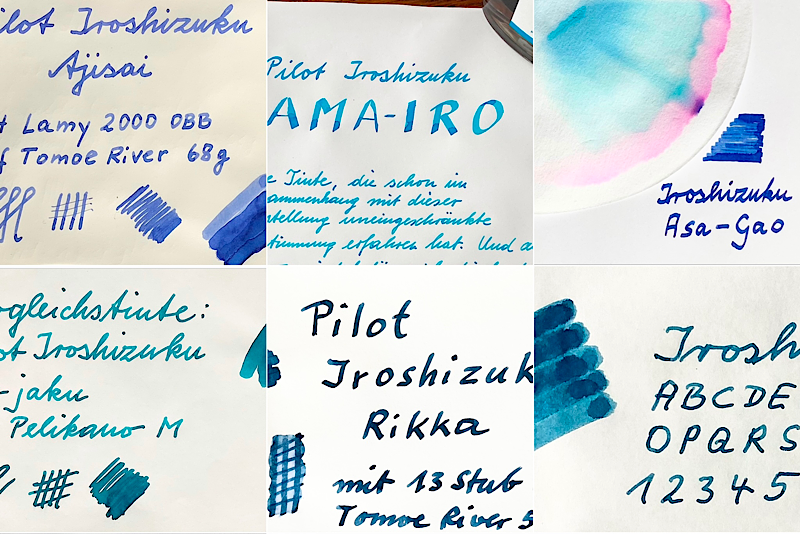 ilot Iroshizuku
Ajisai
t Lamy 2000 OBB
f Tomoe River 68g
Pilot Iroshizuku
AMA-IRO
e Tinte, die schon im
ammenhang mit dieser
stellung uneingeschränkte
timmung erfahren hat. Und a
Iroshizuku
Asa-Gao
gleichstinte:
ot Iroshizuku
-jaku
Pelikano M
Pilot
Iroshizuk
Rikka
mit 13 Stub
Tomoe River 5
Irosh
ABCDE
OPQRS
12345